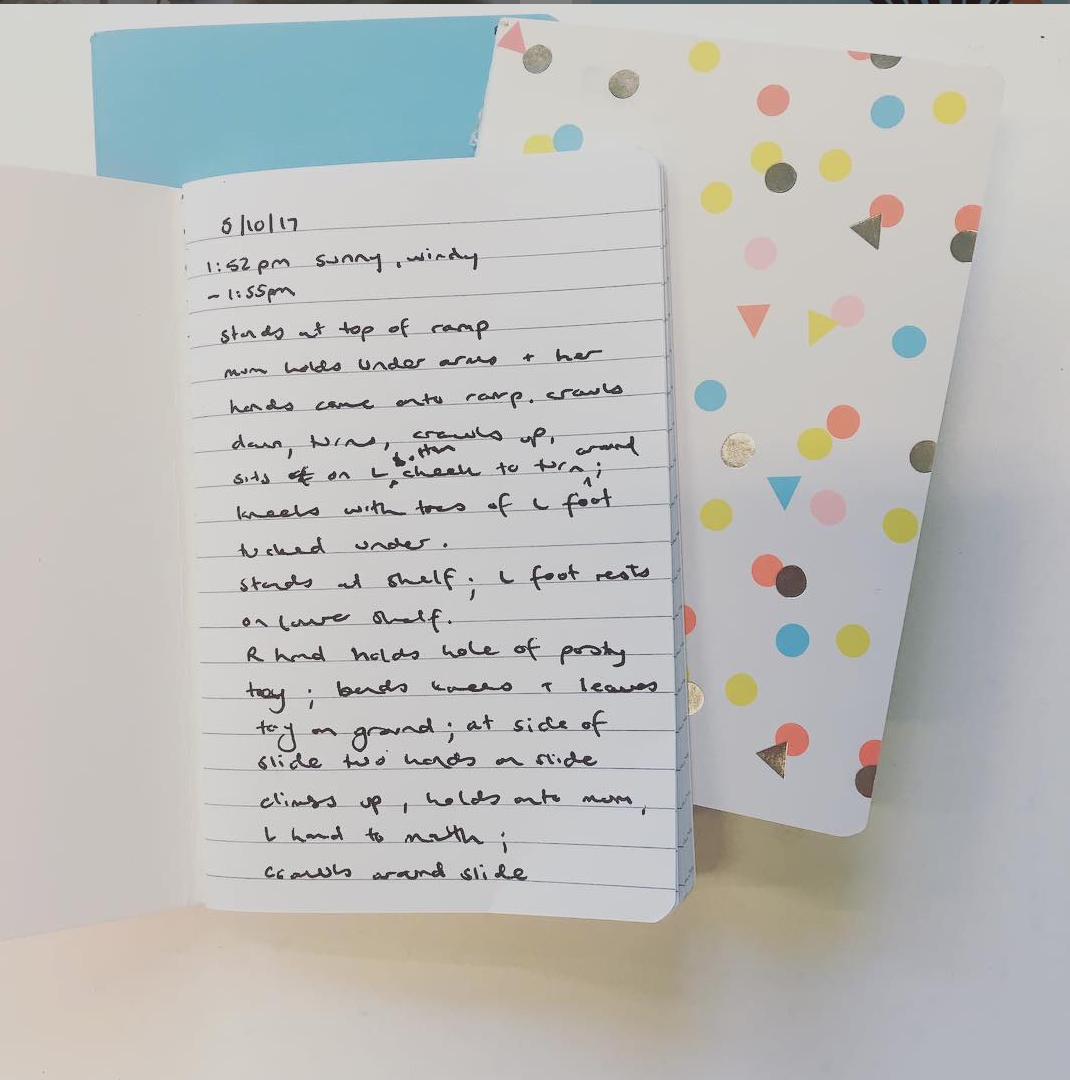 5/10/17
1:52pm sunny, windy
- 1:55pm
stands at top of ramp
mum holds under arms + her
hands come onto ramp. crawls
down, turns, crawls up,
sits on L bottom cheek to turn around;
kneels with toes of L foot
tucked under.
stands at shelf; L foot rests
on lower shelf.
R hand holds hole of posty
toy; bends knees + leaves
toy on ground; at side of
slide two hands on slide
climbs up, holds onto mum,
L hand to mouth;
crawls around slide